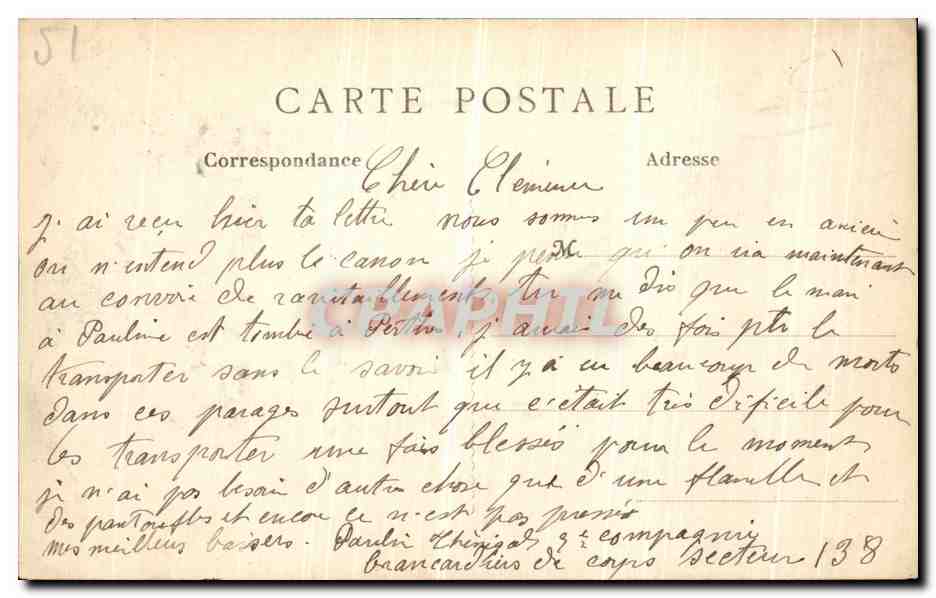 51
CARTE POSTALE
Correspondance Adresse
Chère Clémence
j'ai reçu hier ta lettre nous sommes un peu en arrière
on n'entend plus le canon je pense qu on ira maintenant
M
au convoi de ravitaillement tu me dis que le mari
à Pauline est tombé à Perthes, j aurai des fois pu le
transporter sans le savoir il y a eu beaucoup de morts
dans ces parages surtout que c'était très dificile pour
les transporter une fois blessés pour le moment
je n'ai pas besoin d'autre chose que d'une flanelle et
des pantoufles et encore ce n'est pas pressé
mes meilleurs baisers. Paulin compagnie
brancardiers de corps secteur 138
CPAPHIL